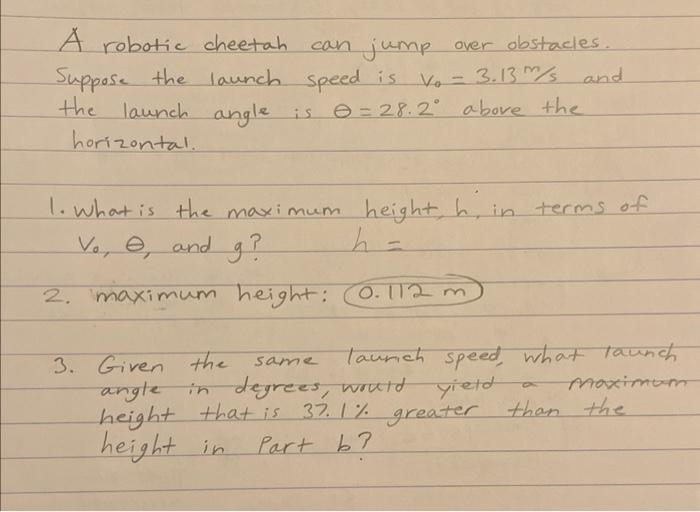 A robotic cheetah can jump over obstacles.
Suppose the launch speed is v₀ = 3.13 m/s and
the launch angle is θ = 28.2° above the
horizontal.
1. What is the maximum height, h, in terms of
V₀, θ, and g? h =
2. maximum height: 0.112 m
3. Given the same launch speed, what launch
angle in degrees, would yield a maximum
height that is 37.1% greater than the
height in Part b?